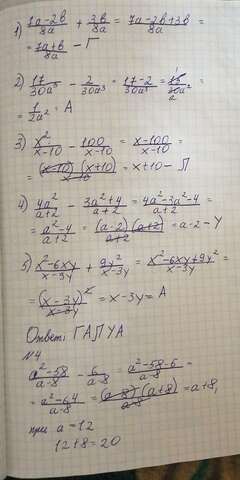 1) 7a-2b/8a + 3b/8a = 7a-2b+3b/8a =
= 7a+b/8a - Г
2) 17/30a³ - 2/30a³ = 17-2/30a³ = 15/30a² =
= 1/2a² = А
3) x²/x-10 - 100/x-10 = x-100/x-10 =
= (x-10)(x+10)/x-10 = x+10 - Л
4) 4a²/a+2 - 3a²+4/a+2 = 4a²-3a²-4/a+2 =
= a²-4/a+2 = (a-2)(a+2)/a+2 = a-2 - У
5) x²-6xy/x-3y + 9y²/x-3y = x²-6xy+9y²/x-3y =
= (x-3y)²/x-3y = x-3y = А
Ответ: ГАЛУА
№4
a²-58/a-8 - 6/a-8 = a²-58-6/a-8 =
= a²-64/a-8 = (a-8)(a+8)/a-8 = a+8,
при a=12
12+8=20